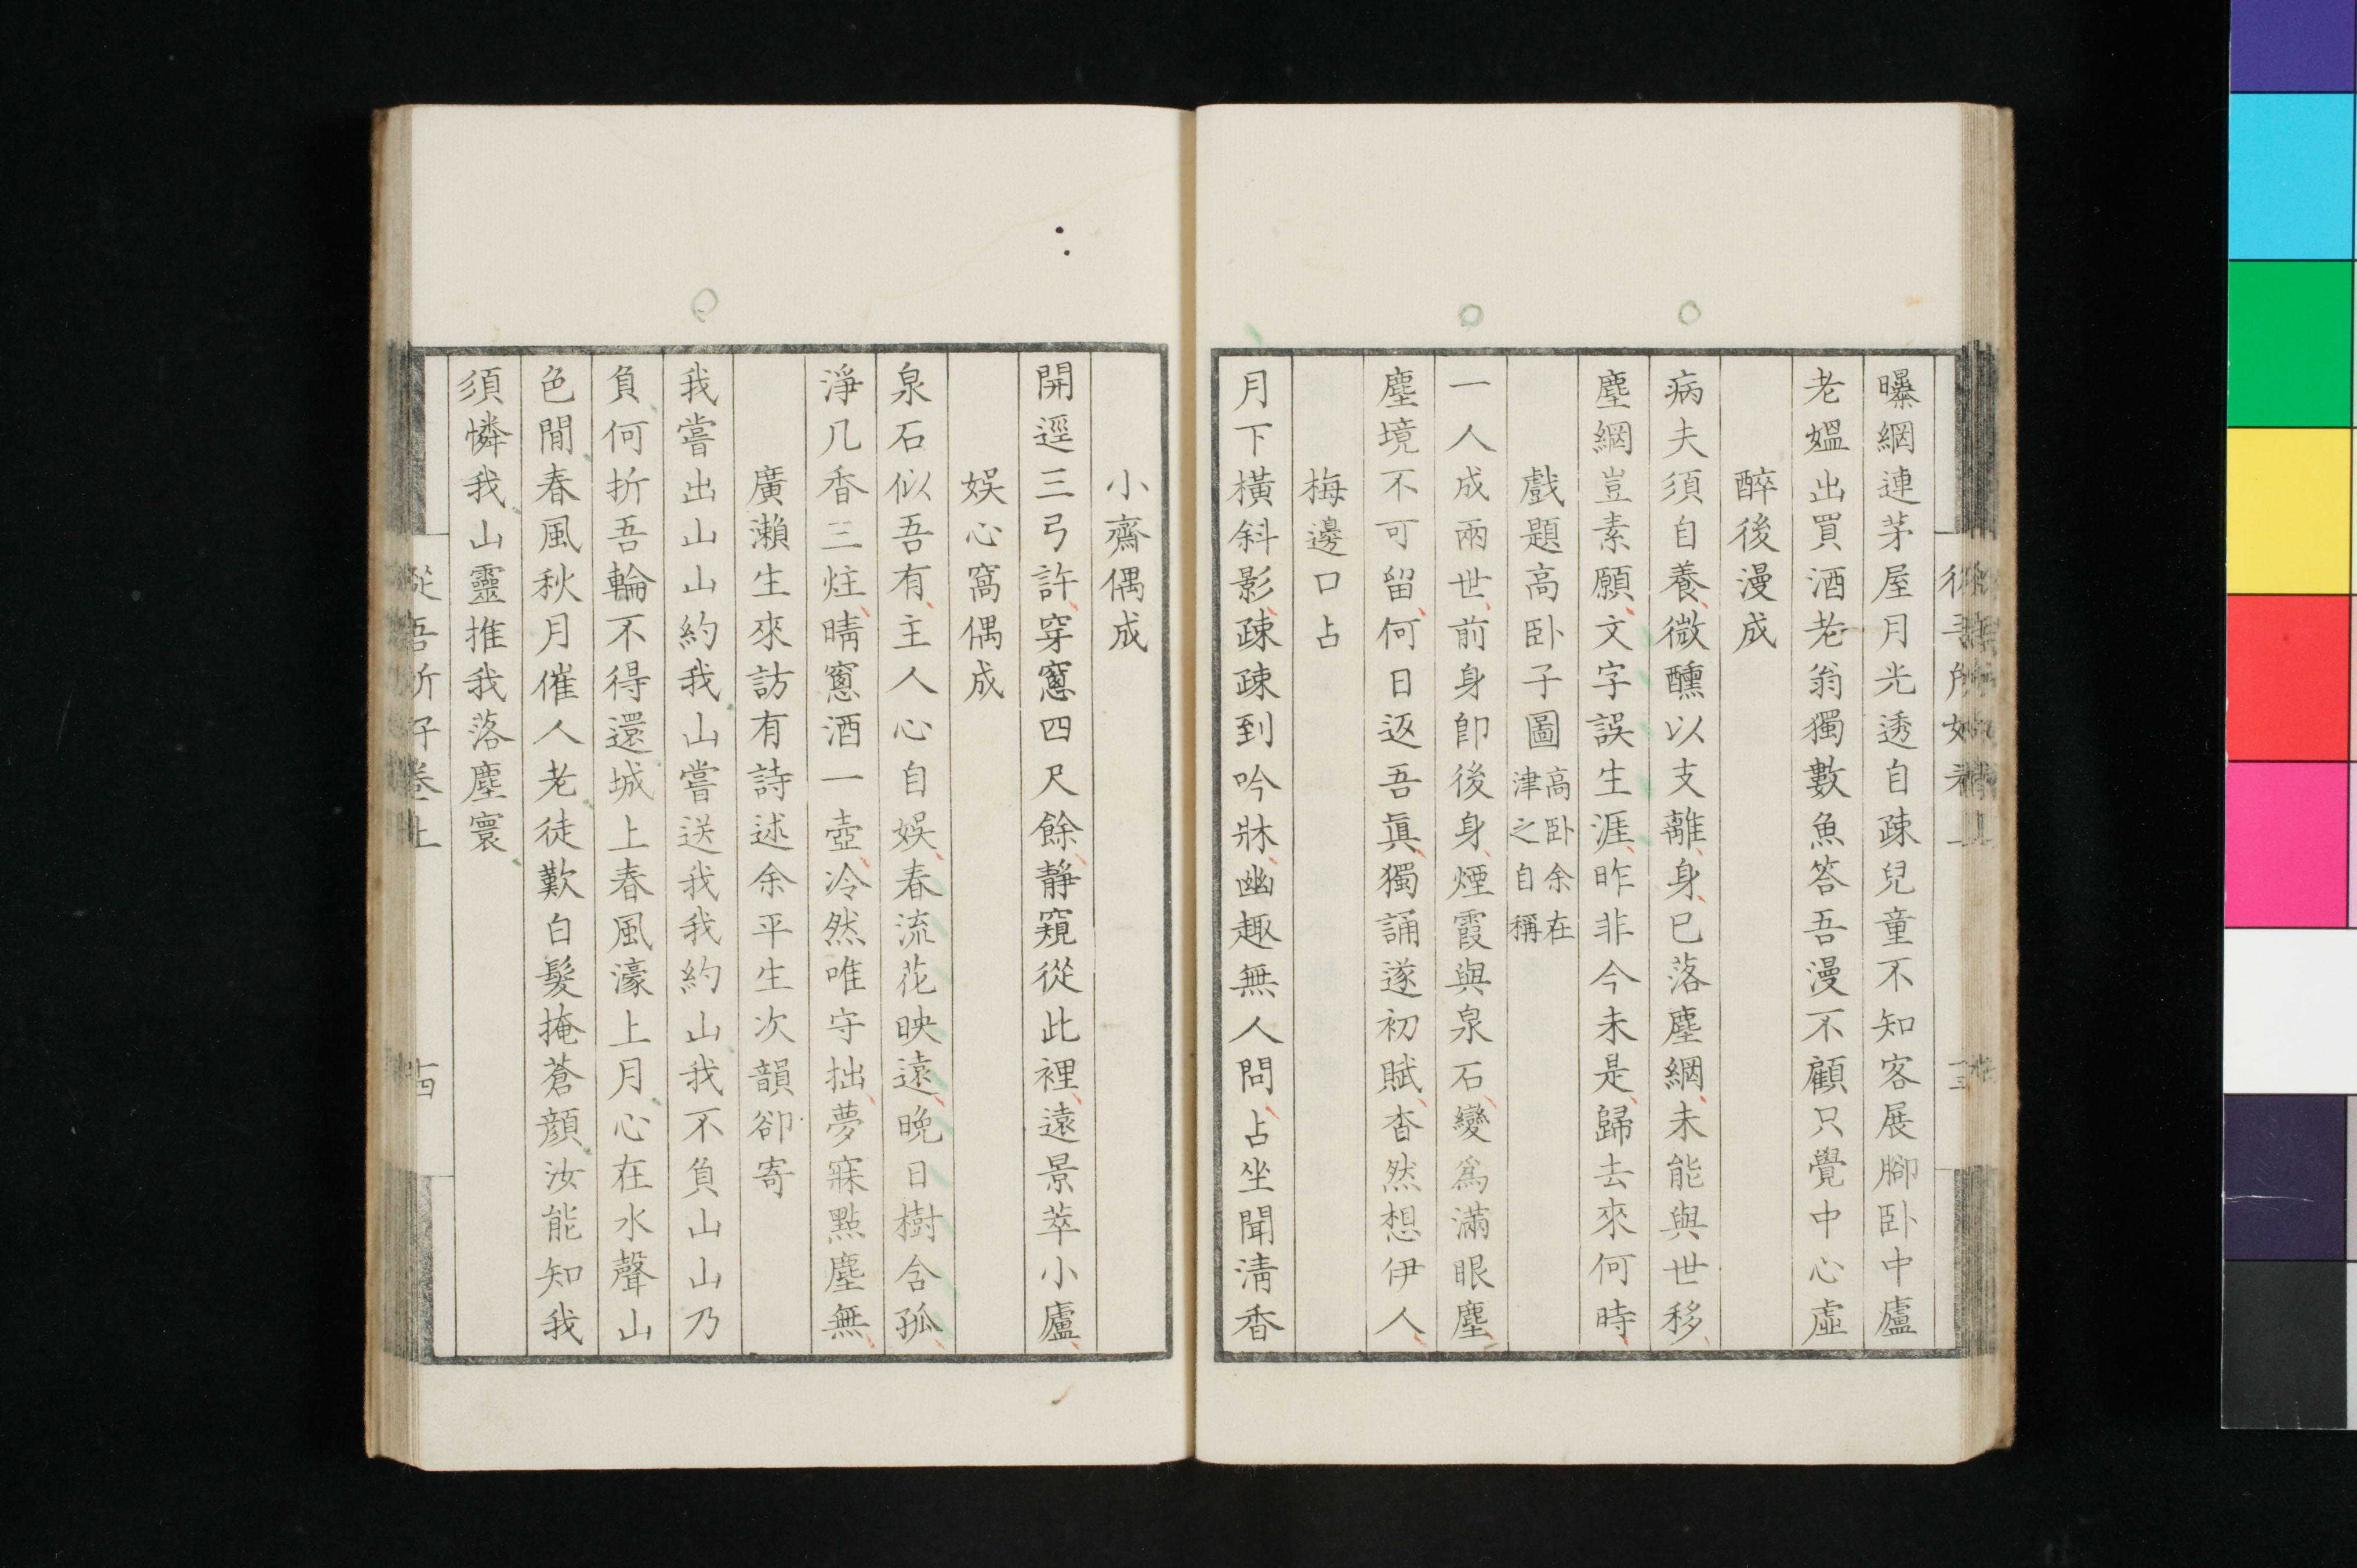 曝網連茅屋月光透自疎兒童不知客展腳卧中廬
老媼出買酒老翁獨數魚答吾漫不顧只覺中心虛
醉後漫成
病夫須自養微醺以支離身已落塵網未能與世移
塵網豈素願文字誤生涯昨非今未是歸去來何時
戲題高卧子圖高卧余在津之自稱
一人成兩世前身卽後身煙霞與泉石變爲滿眼塵
塵境不可留何日返吾眞獨誦遂初賦杳然想伊人
梅邊口占
月下橫斜影疎疎到吟牀幽趣無人問占坐聞淸香
小齋偶成
開逕三弓許穿窻四尺餘靜窺從此裡遠景萃小廬
娛心窩偶成
泉石似吾有主人心自娛春流花映遠晚日樹含孤
淨几香三炷晴窻酒一壺冷然唯守拙夢寐點塵無
廣瀨生來訪有詩述余平生次韻卻寄
我嘗出山山約我山嘗送我我約山我不負山山乃
負何折吾輪不得還城上春風濠上月心在水聲山
色間春風秋月催人老徒歎白髮掩蒼顏汝能知我
須憐我山靈推我落塵寰
從吾所好卷上
十四